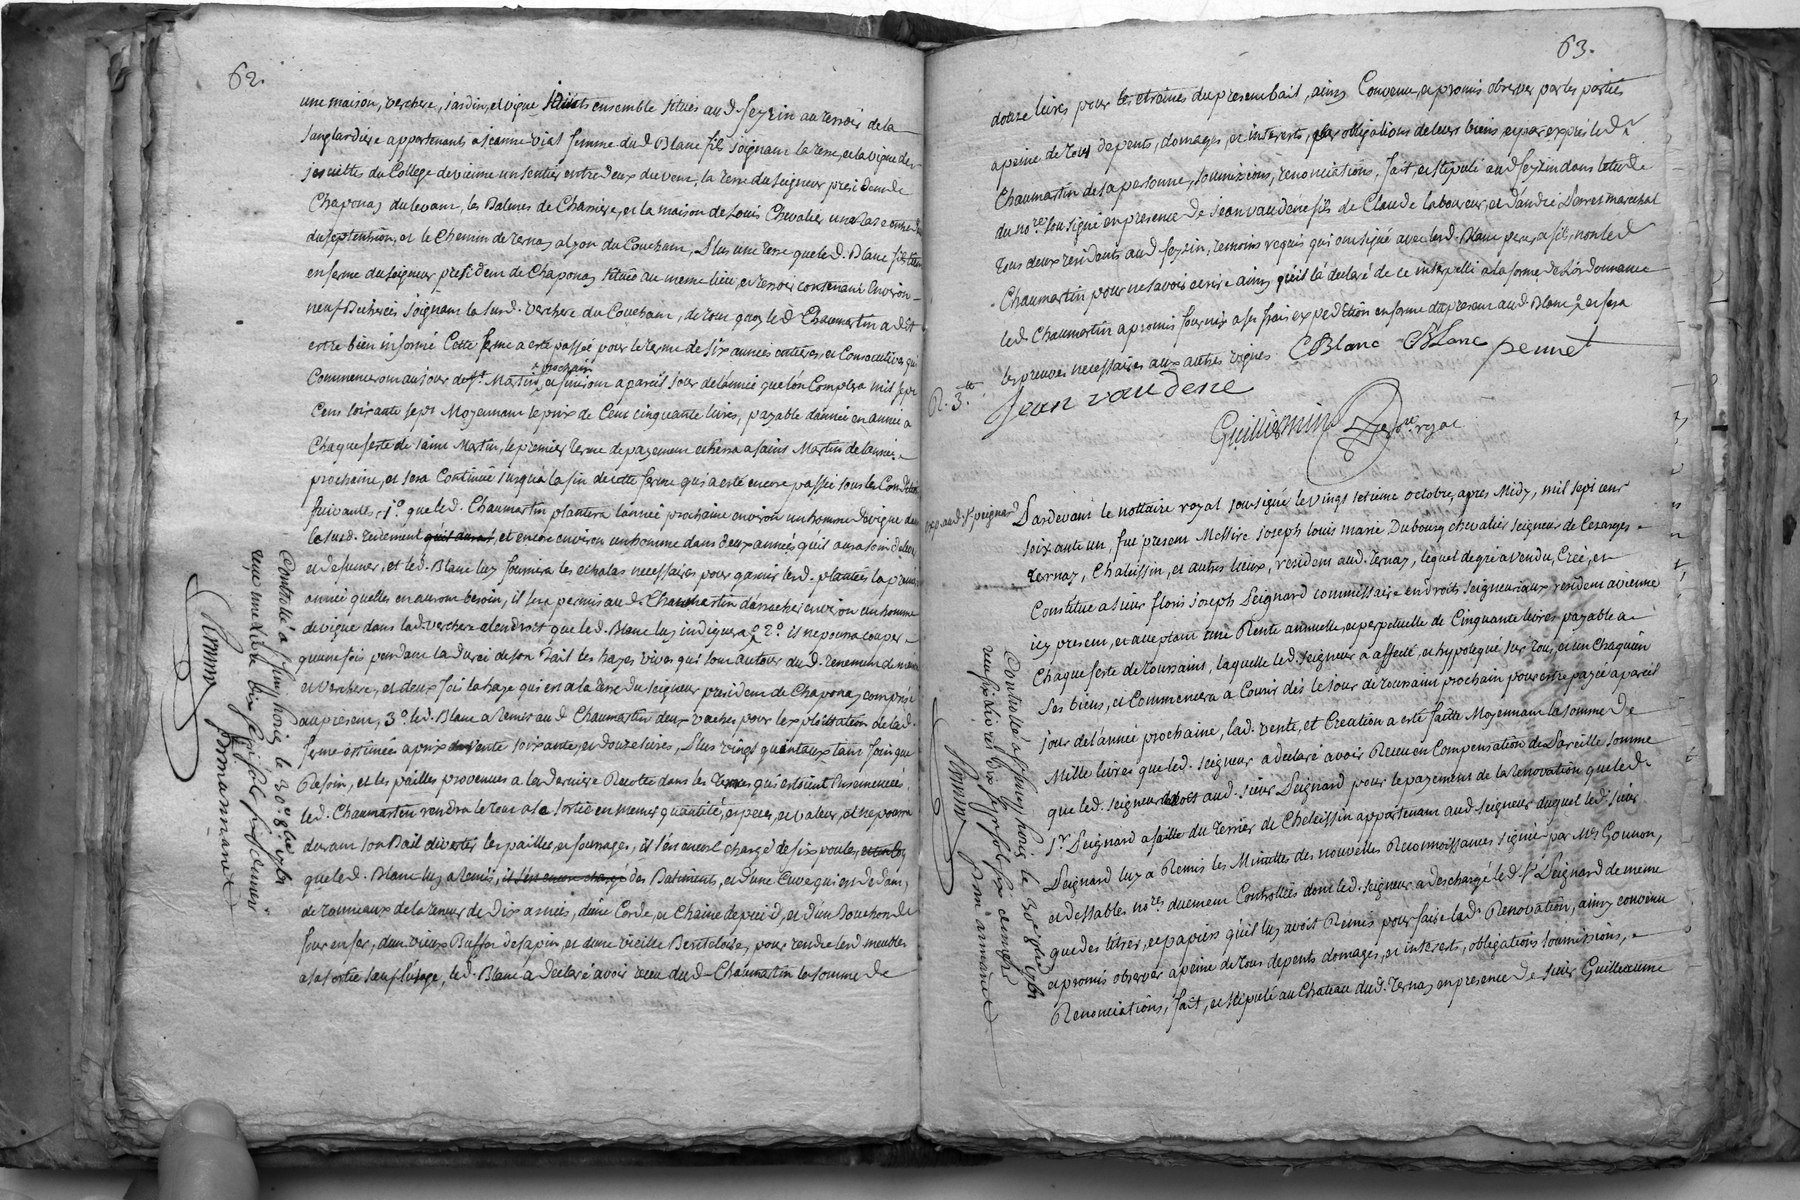 62.
une maison, verchere, jardin, et vigne situés ensemble situés aud. feyzin au terroir de la
sanglardiere appartenants a jeanne vial femme dud. Blanc fils joignant la terre, et la vigne des
jesuittes du College de vienne un sentier entre deux du vent, la terre du seigneur president de
Chaponay du levant, les Balmes de Charriere, et la maison de Louis Chevalier une haze entre
du septentrion, et le Chemin de ternay a lyon du Couchant, Plus une terre que led. Blanc fils tient
en ferme du seigneur president de Chaponay située au meme lieu, et terroir contenant environ
neuf Bicherées, joignant la susd. verchere du Couchant, de tout quoy led. Chaumartin a dit
estre bien informé Cette ferme a esté passée pour le terme de six années entieres, et Consecutives qui
Commenceront au jour de st. Martin prochain, et finiront a pareil jour de l'année que l'on Comptera mil sept
Cent soixante sept Moyennant le prix de Cent cinquante livres, payable d'année en année a
Chaque feste de saint Martin, le premier terme de payement echerra a saint Martin de l'année
prochaine, et sera Continué jusqu'a la fin de cette ferme qui a esté encore passée sous les Conditions
suivantes, 1°. que led. Chaumartin plantera l'année prochaine environ un homme de vigne dans
la susd. tenement qu'il aura, et encore environ un homme dans deux années qu'il aura soin de
et de fumer, et led. Blanc luy fournira les echalas necessaires pour garnir lesd. plantées la premiere
année quelles en auront besoin, il sera permis aud. Chaumartin d'arracher environ un homme
de vigne dans lad. verchere a lendroit que led. Blanc luy indiquera, 2°. il ne pourra couper
qu'une fois pendant la durée de son Bail les hayes vives qui sont autour dud. tenement de
et verchere, et deux fois la haye qui est a la terre du seigneur president de Chaponay comprise
au present, 3°. led. Blanc a remis aud. Chaumartin deux vaches pour lexploittation de lad.
ferme estimées a prix de vente soixante, et douze livres, Plus vingt quintaux tant foin que
Resoin, et les pailles provenues a la derniere Recolte dans les terres qui estoient Ensemencées,
led. Chaumartin rendra le tout a la sortie en meme quantité, espece, et valeur, et ne pourra
durant son Bail divertir les pailles, et fourrages, il s'est encore chargé de six poules
que led. Blanc luy a Remis, il s'est encore chargé des Batiments, et d'une Cuve qui est dedans,
de tonneaux de la teneur de Dix asnées, d'une Corde, et Chaine de puid, et d'un Bouchon de
four en fer, d'un vieux Buffet de sapin, et d'une vieille Benteloire, pour rendre lesd. meubles
a la sortie sauf l'usage, led. Blanc a declaré avoir receu dud. Chaumartin la somme de
Controllé a st. simphorien le 30e. 8bre 1761
reçu une livre six sols six deniers
permanant
63.
douze livres pour les etraines du present bail, ainsy Convenu, et promis observer par les parties
a peine de tous depents, domages, et interests, par obligations de leurs biens, et par exprès led.
Chaumartin de sa personne, soumizions, renonciations, fait, et stipulé aud. feyzin dans letude
du nore. soussigné en presence de jean vaudene fils de Claude laboureur, et d'andré Perret marechal
tous deux residents aud. feyzin, temoins requis qui ont signé avec lesd. Blanc pere, et fils, non led.
Chaumartin pour ne savoir ecrire ainsy qu'il l'a declaré de ce interpellé a la forme de l'ordonnance
led. Chaumartin a promis fournir a ses frais expedition en forme du present aud. Blanc, et fera
les preuves necessaires aux autres vignes CBlanc CBLanc perret
R. 3.tt
Jean vaudene
Guillermin Nere royal
exp. aud. sr peignard
Pardevant le nottaire royal soussigné le vingt setieme octobre, apres Midy, mil sept cent
soixante un, fut present Messire joseph louis marie Dubourg chevalier seigneur de Cezarges
ternay, Chaleissin, et autres lieux, resident aud. ternay, lequel de gré a vendu, Créé, et
Constitué a sieur floris joseph Peignard commissaire en droits seigneuriaux resident a vienne
icy present, et acceptant une Rente annuelle, et perpetuelle de Cinquante livres payable a
Chaque feste de toussaint, laquelle led. seigneur a affecté, et hypotequé sur tous, et un Chaqu'un
ses biens, et Commencera a Courir dès le jour de toussaint prochain pour estre payée a pareil
jour de l'année prochaine, lad. vente, et Creation a esté faitte Moyennant la somme de
Mille livres que led. seigneur a declaré avoir Receu en Compensation de Pareille somme
que led. seigneur doit aud. sieur Peignard pour le payement de la renovation que led.
sr. Peignard a faitte du terrier de Cheleissin appartenant aud. seigneur duquel led. sieur
Peignard luy a Remis les Minuttes des nouvelles Reconnoissances signées par Mes Gounon,
et dessables nores. duement Controllées dont led. seigneur a deschargé led. sr Peignard de meme
que des titres, et papiers qu'il luy avoit Remis pour faire lad. Renovation, ainsy convenu
et promis observer a peine de tous depents domages, et interests, obligations soumissions,
Renonciations, fait, et stipulé au Chateau dud. ternay en presence de sieur Guillaume
Controllé a st. simphorien le 30e 8bre 1761